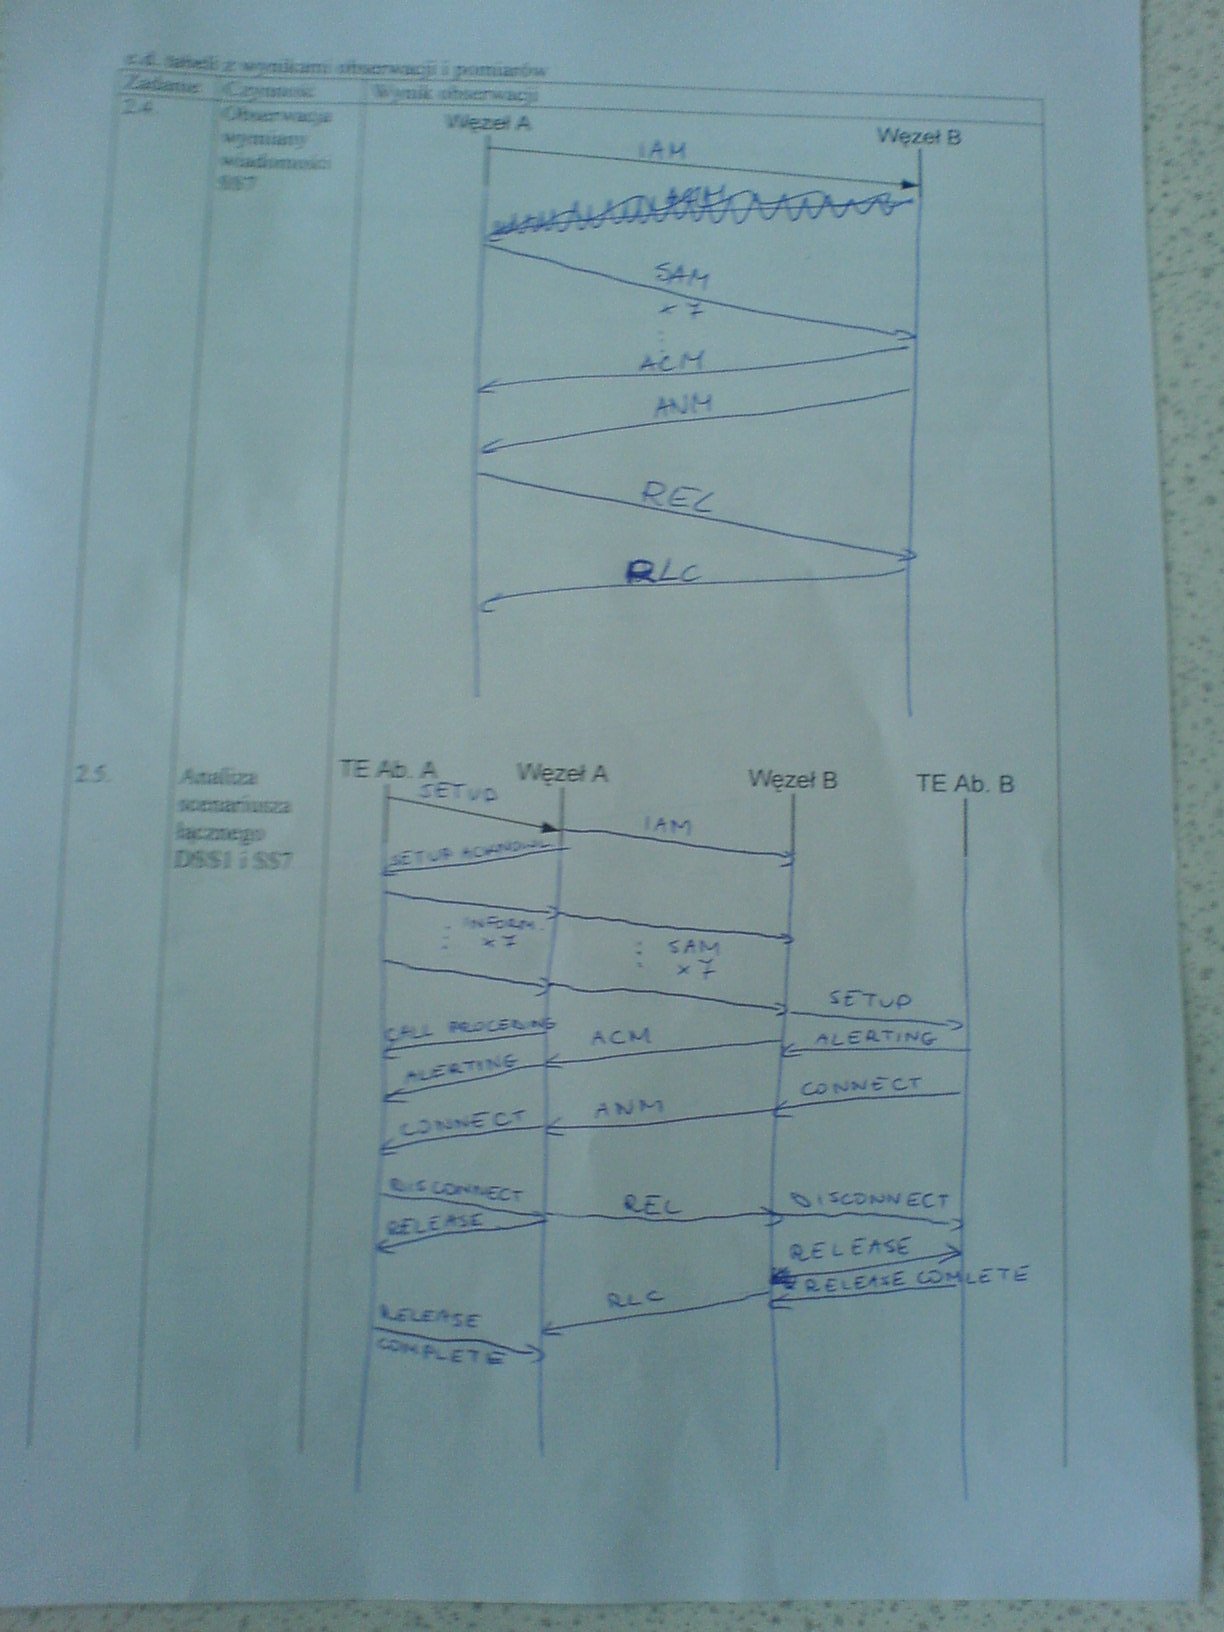 c.d. tabeli z wynikami obserwacji i pomiarów
Zadanie Czynność Wynik obserwacji
2.4. Obserwacja wymiany wiadomości SS7
Węzeł A Węzeł B
IAM
SAM
x 7
ACM
ANM
REL
RLC
2.5. Analiza scenariusza łącznego DSS1 i SS7
TE Ab. A Węzeł A Węzeł B TE Ab. B
SETUP
IAM
SETUP ACKNOWL
INFORM. x 7
SAM x 7
SETUP
CALL PROCEDING
ACM
ALERTING
ALERTING
CONNECT
ANM
CONNECT
DISCONNECT
REL
DISCONNECT
RELEASE
RELEASE
RELEASE COMLETE
RLC
RELEASE
COMPLETE